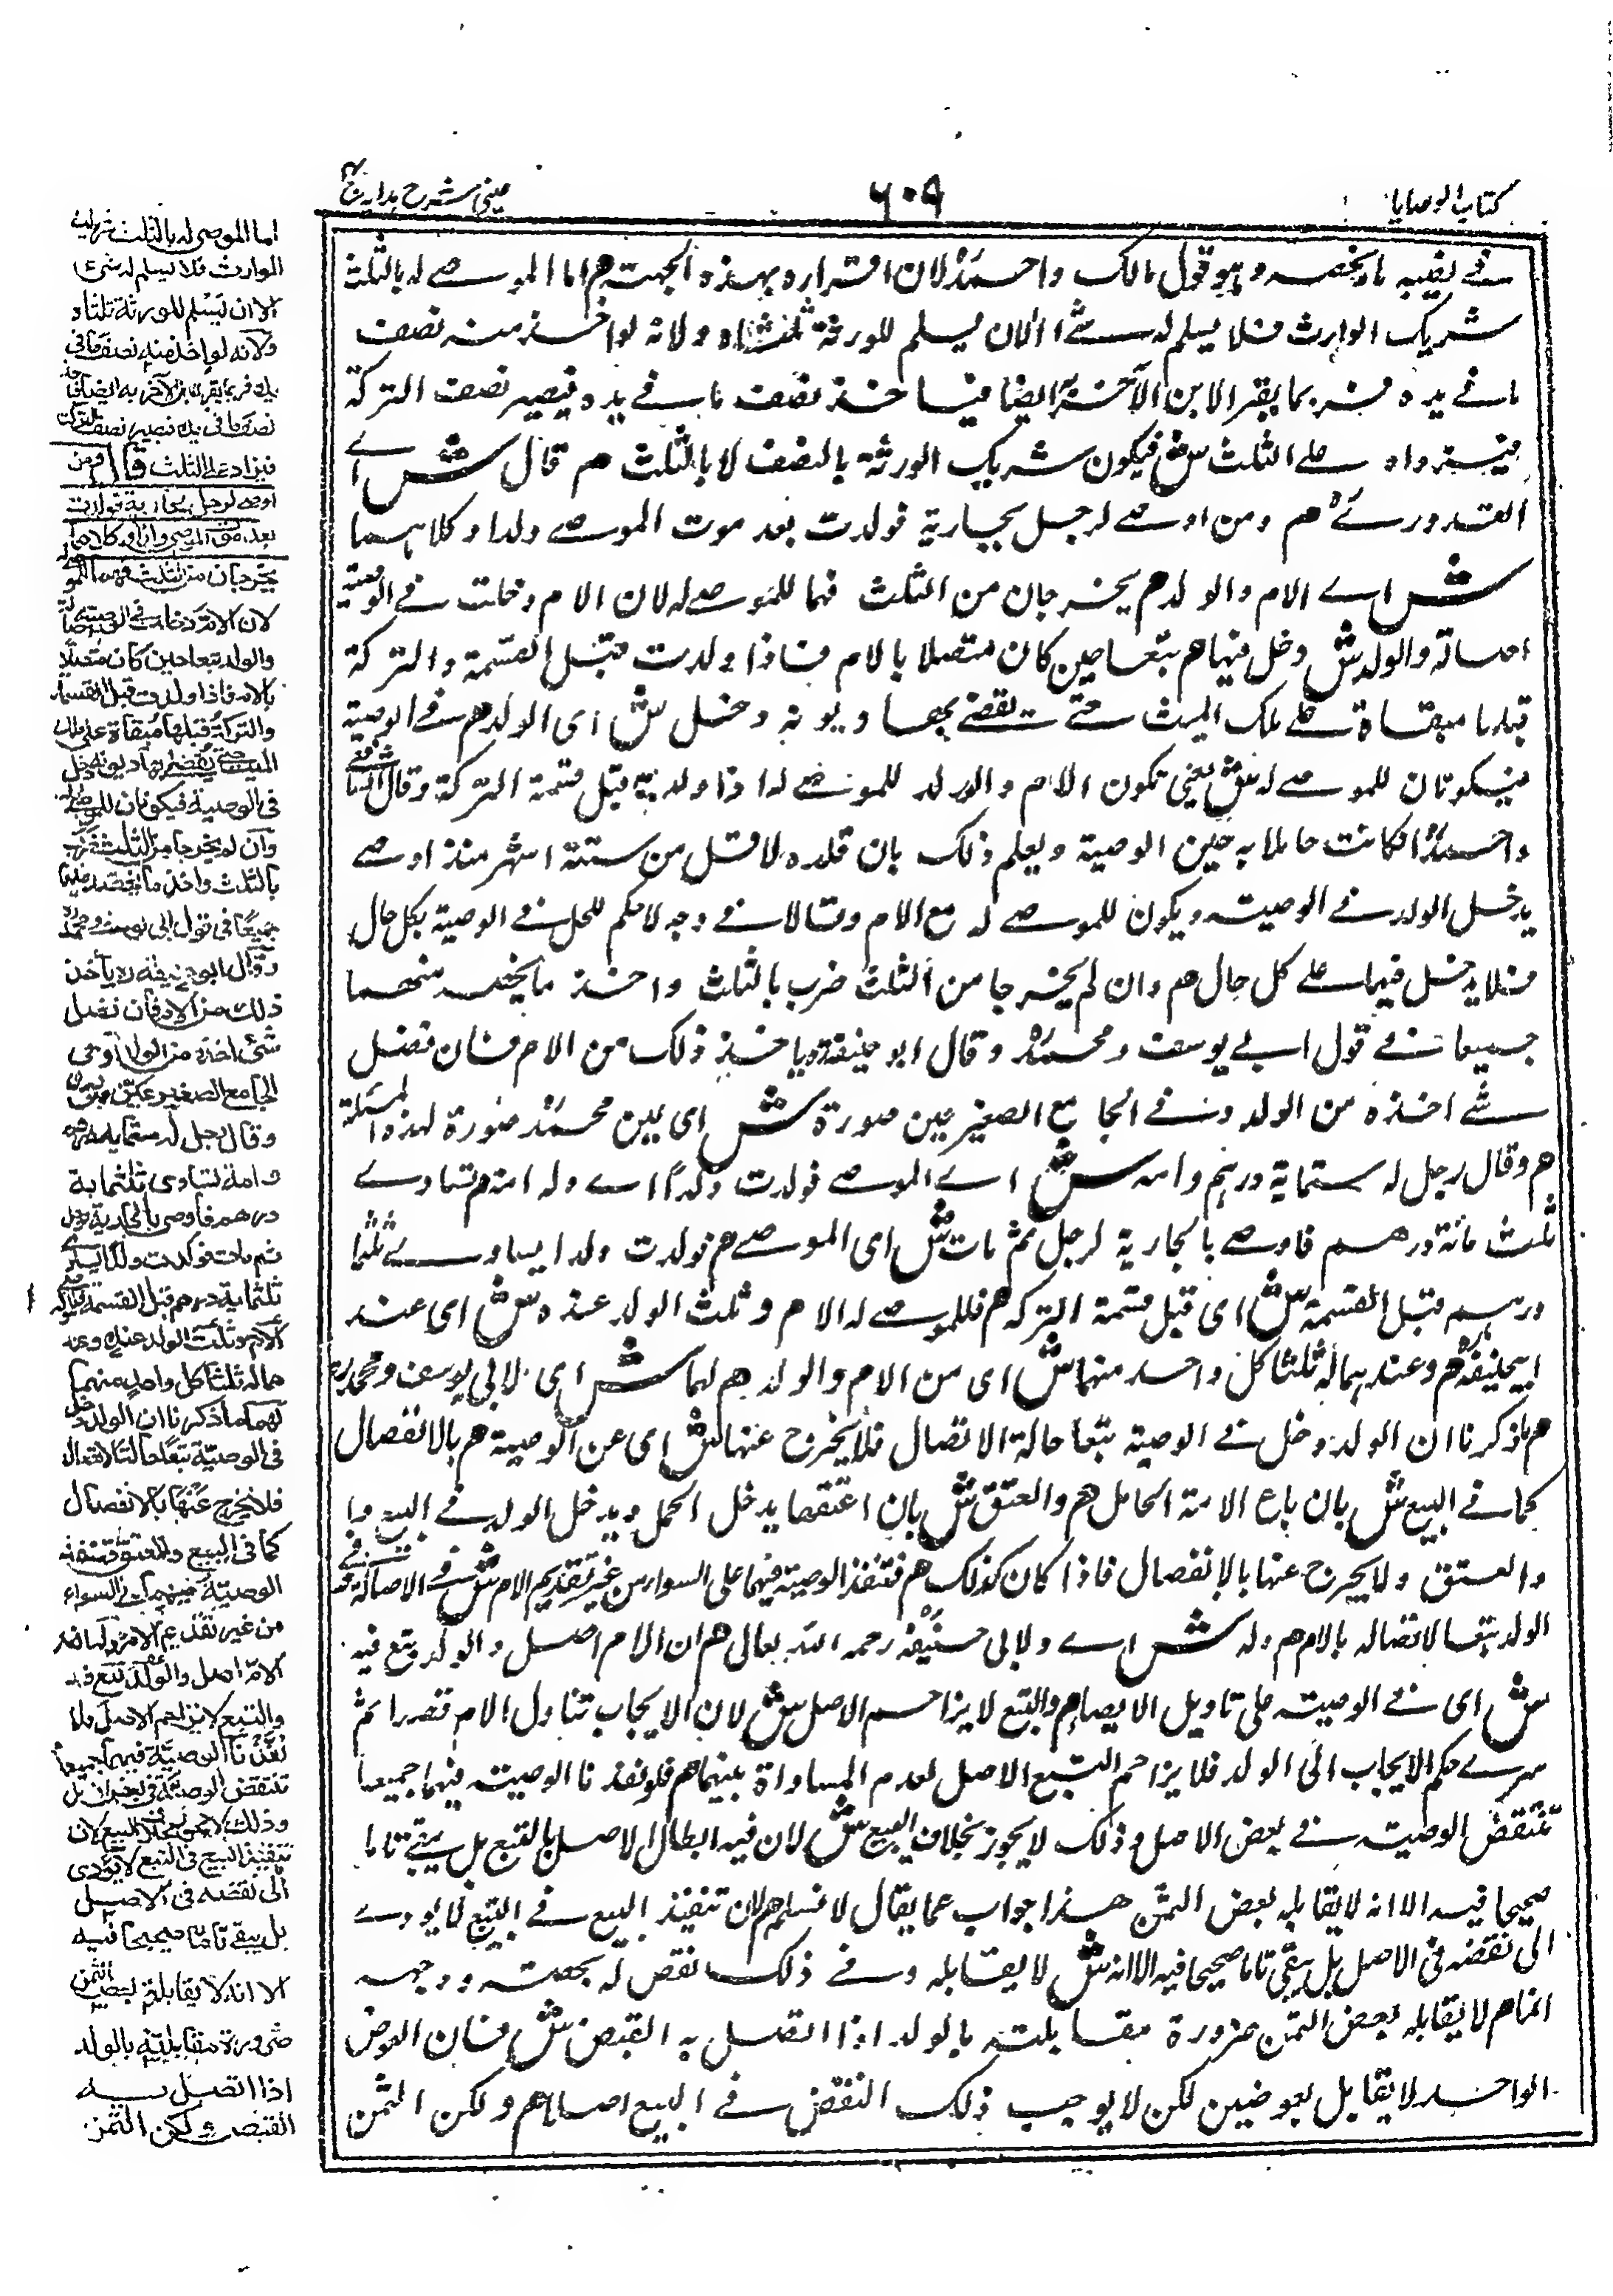 كتاب الوصايا
٦٠٩
عيني شرح هداية
في نصيبه ما يخصه وهو قول مالك واحمدؒ لان اقراره بهذه الجهت هم اما الموصے له بالثلث
شريك الوارث فلا يسلم له شے الا ان يسلم للورثة ثلثاه ولانه لو اخذ منه نصف
ما في يده فربما يقر الابن الآخر به ايضا فياخذ نصف ما في يده فيصير نصف التركة
فيزداد على الثلث ش فيكون شريك الورثة بالنصف لا بالثلث هم قال ش اے
القدورےؒ هم ومن اوصے لرجل بجارية فولدت بعد موت الموصے ولدا وكلاهما
ش اے الام والولد هم يخرجان من الثلث فهما للموصے له لان الام دخلت في الوصية
اصالة والولد ش دخل فيها هم تبعا حين كان متصلا بالام فاذا ولدت قبل القسمة والتركة
قبلها مبقاة على ملك الميت حتے تقضے بها ديونه دخل ش اى الولد هم في الوصية
فيكونان للموصے له ش يعني تكون الام والولد للموصے له اذا ولدته قبل قسمة التركة وقال الشافعي
واحمدؒ اذا كانت حاملا به حين الوصية ويعلم ذلك بان تلده لاقل من ستة اشهر منذ اوصے
يدخل الولد في الوصية ويكون للموصے له مع الام وقالا في وجه لا حكم للحمل في الوصية بكل حال
فلا يدخل فيها على كل حال هم وان لم يخرجا من الثلث ضرب بالثلث واخذ ما يخصه منهما
جميعا في قول ابي يوسف ومحمدؒ وقال ابو حنيفةؒ ياخذ ذلك من الام فان فضل
شے اخذه من الولد وفي الجامع الصغير عين صورة ش اى عين محمدؒ صورة لهذه المسئلة
هم وقال رجل له ستماية درهم وامه ش اے الموصے فولدت ولدا اے وله امة هم تساوے
ثلث مائة درهم فاوصے بالجارية لرجل ثم مات ش اى الموصے هم فولدت ولدا يساوے ثلثما
درهم قبل القسمة ش اى قبل قسمة التركة هم فللموصے له الام وثلث الولد عنده ش اى عند
ابيحنيفةؒ هم وعندهما له ثلثا كل واحد منهما ش اى من الام والولد هم لهما ش اى لابي يوسف ومحمدؒ
هم ما ذكرنا ان الولد دخل في الوصية تبعا حالة الاتصال فلا يخرج عنها ش اى عن الوصية هم بالانفصال
كما في البيع ش بان باع الامة الحامل هم والعتق ش بان اعتقها يدخل الحمل ويدخل الولد في البيع
والعتق ولا يخرج عنها بالانفصال فاذا كان كذلك هم فتنفذ الوصية فيهما على السواء من غير تقديم الام ش في الاصالة
الولد تبعا لاتصاله بالام هم وله ش اے ولابي حنيفة رحمه الله تعالى هم ان الام اصل والولد تبع فيه
ش اى في الوصية على تاويل الايصا هم والتبع لا يزاحم الاصل ش لان الايجاب تناول الام قصدا ثم
سرے حكم الايجاب الى الولد فلا يزاحم التبع الاصل لعدم المساواة بينهما هم فلو نفذنا الوصية فيهما جميعا
تنتقض الوصية في بعض الاصل وذلك لا يجوز بخلاف البيع ش لان فيه ابطال الاصل بالتبع بل يبقے تاما
صحيحا فيه الا انه لا يقابله بعض الثمن هذا جواب عما يقال لا نسلم هم لان تنفيذ البيع في التبع لا يودے
الى نقضه في الاصل بل يبقى تاما صحيحا فيه الا انه ش لا يقابله وفي ذلك نقص له بحصته ووجهه
انما هم لا يقابله بعض الثمن ضرورة مقابلته بالولد اذا اتصل به القبض ش فان العوض
الواحد لا يقابل بعوضين لكن لا يوجب ذلك النقض في البيع اصلا هم ولكن الثمن
اما الموصى له بالثلث شريك
الوارث فلا يسلم له شئ
الا ان يسلم للورثة ثلثاه
ولانه لو اخذ منه نصف ما في
يده فربما يقر الابن الآخر به ايضا فياخذ
نصف ما في يده فيصير نصف التركة
فيزداد على الثلث قال ومن
اوصے لرجل بجارية فولدت
بعد موت الموصى ولدا وكلاهما
يخرجان من الثلث فهما للموصى له
لان الام دخلت في الوصية اصالة
والولد تبعا حين كان متصلا
بالام فاذا ولدت قبل القسمة
والتركة قبلها مبقاة على ملك
الميت حتے يقضے بها ديونه دخل
في الوصية فيكونان للموصى له
وان لم يخرجا من الثلث ضرب
بالثلث واخذ ما يخصه منهما
جميعا في قول ابي يوسف ومحمدؒ
وقال ابو حنيفةؒ يأخذ
ذلك من الام فان فضل
شئ اخذه من الولد وفي
الجامع الصغير عين صورة
وقال رجل له ستماية درهم
وامة تساوي ثلثماية
درهم فاوصى بالجارية لرجل
ثم مات فولدت ولدا يساوي
ثلثماية درهم قبل القسمة فللموصى له
الام وثلث الولد عنده وعند
هما له ثلثا كل واحد منهما
لهما ما ذكرنا ان الولد دخل
في الوصية تبعا حالة الاتصال
فلا يخرج عنها بالانفصال
كما في البيع والعتق فتنفذ
الوصية فيهما على السواء
من غير تقديم الام وله ان
الام اصل والولد تبع فيه
والتبع لا يزاحم الاصل فلو
نفذنا الوصية فيهما جميعا
تنتقض الوصية في بعض الاصل
وذلك لا يجوز بخلاف البيع لان
تنفيذ البيع في التبع لا يؤدى
الى نقضه في الاصل
بل يبقے تاما صحيحا فيه
الا انه لا يقابله بعض الثمن
ضرورة مقابلته بالولد
اذا اتصل به
القبض ولكن الثمن